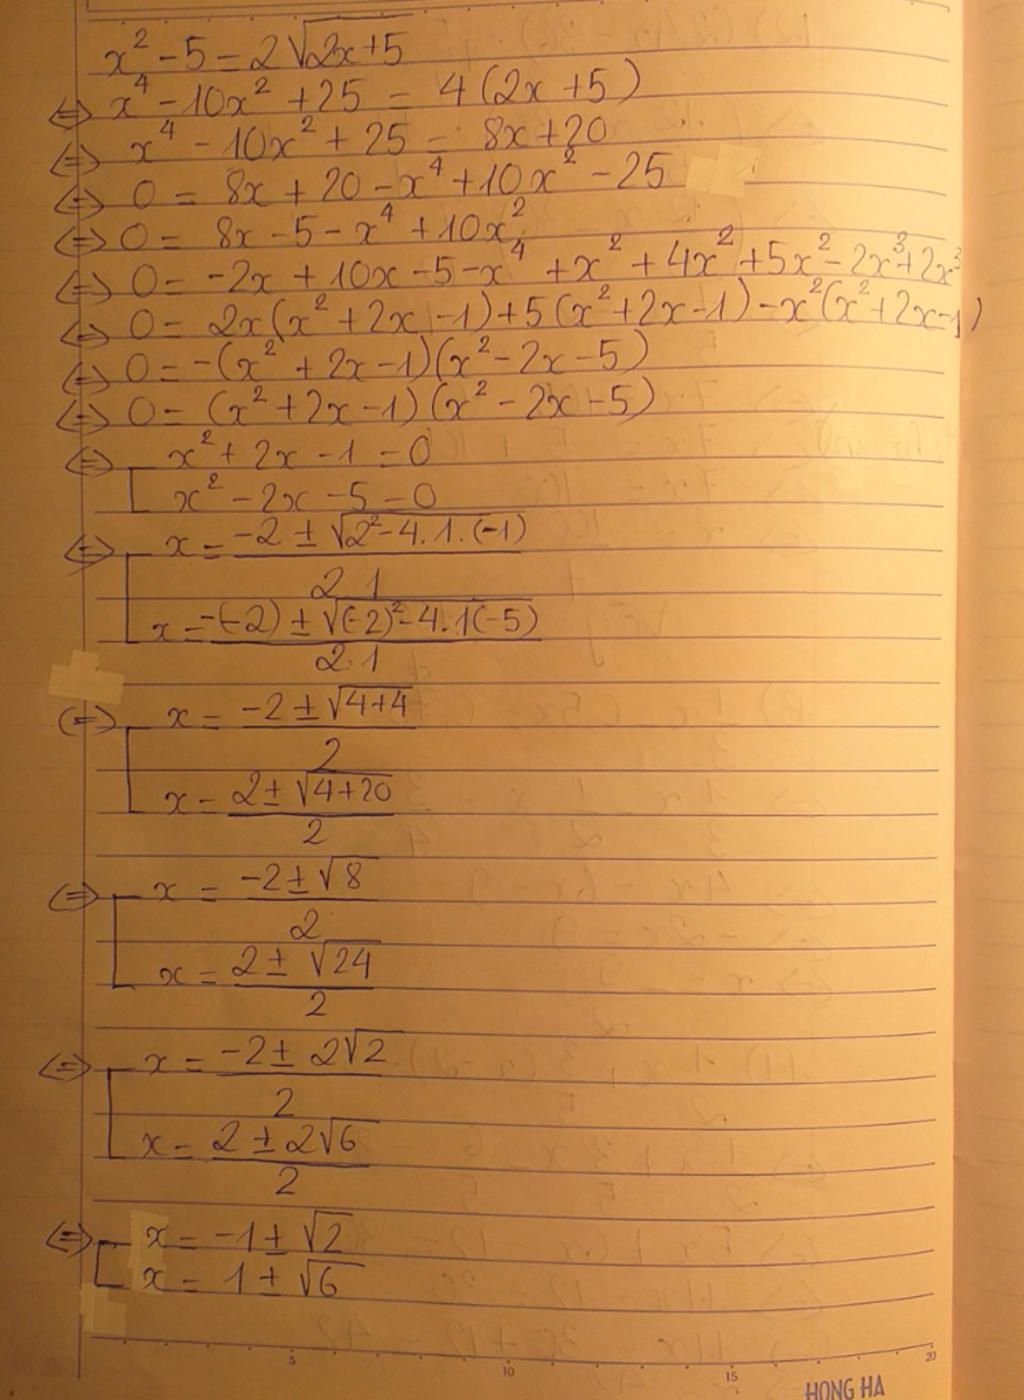 x² - 5 = 2√(2x+5)
⇔ x⁴ - 10x² + 25 = 4(2x+5)
⇔ x⁴ - 10x² + 25 = 8x+20
⇔ 0 = 8x + 20 - x⁴ + 10x² - 25
⇔ 0 = 8x - 5 - x⁴ + 10x²
⇔ 0 = -2x + 10x - 5 - x⁴ + x² + 4x² + 5x² - 2x³ + 2x³
⇔ 0 = 2x(x² + 2x - 1) + 5(x² + 2x - 1) - x²(x² + 2x - 1)
⇔ 0 = -(x² + 2x - 1)(x² - 2x - 5)
⇔ 0 = (x² + 2x - 1)(x² - 2x - 5)
⇔ [ x² + 2x - 1 = 0
x² - 2x - 5 = 0
⇔ [ x = (-2 ± √(2² - 4.1.(-1)))/(2.1)
x = (-(-2) ± √((-2)² - 4.1(-5)))/(2.1)
⇔ [ x = (-2 ± √(4+4))/2
x = (2 ± √(4+20))/2
⇔ [ x = (-2 ± √8)/2
x = (2 ± √24)/2
⇔ [ x = (-2 ± 2√2)/2
x = (2 ± 2√6)/2
⇔ [ x = -1 ± √2
x = 1 ± √6
5 10 15 20
HONG HA